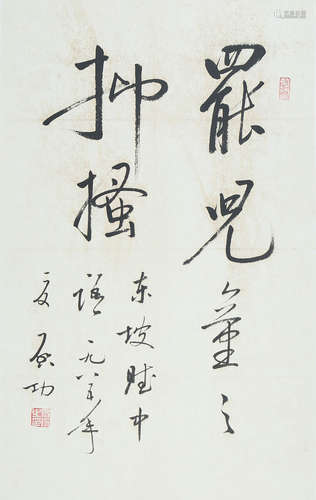 罷兒童之
抑搔
东坡赋中
语一九八年
夏启功